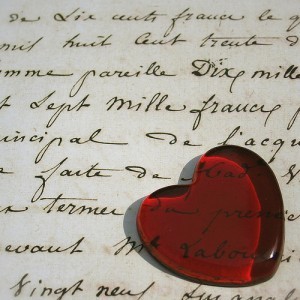 de Six cents francs le q
mil huit Cent trente d
omme pareille Dix mille
t Sept Mille francs p
incipal de l'acqu
faite de
termes du premier
evant Me Labour
Vingt neuf Journal